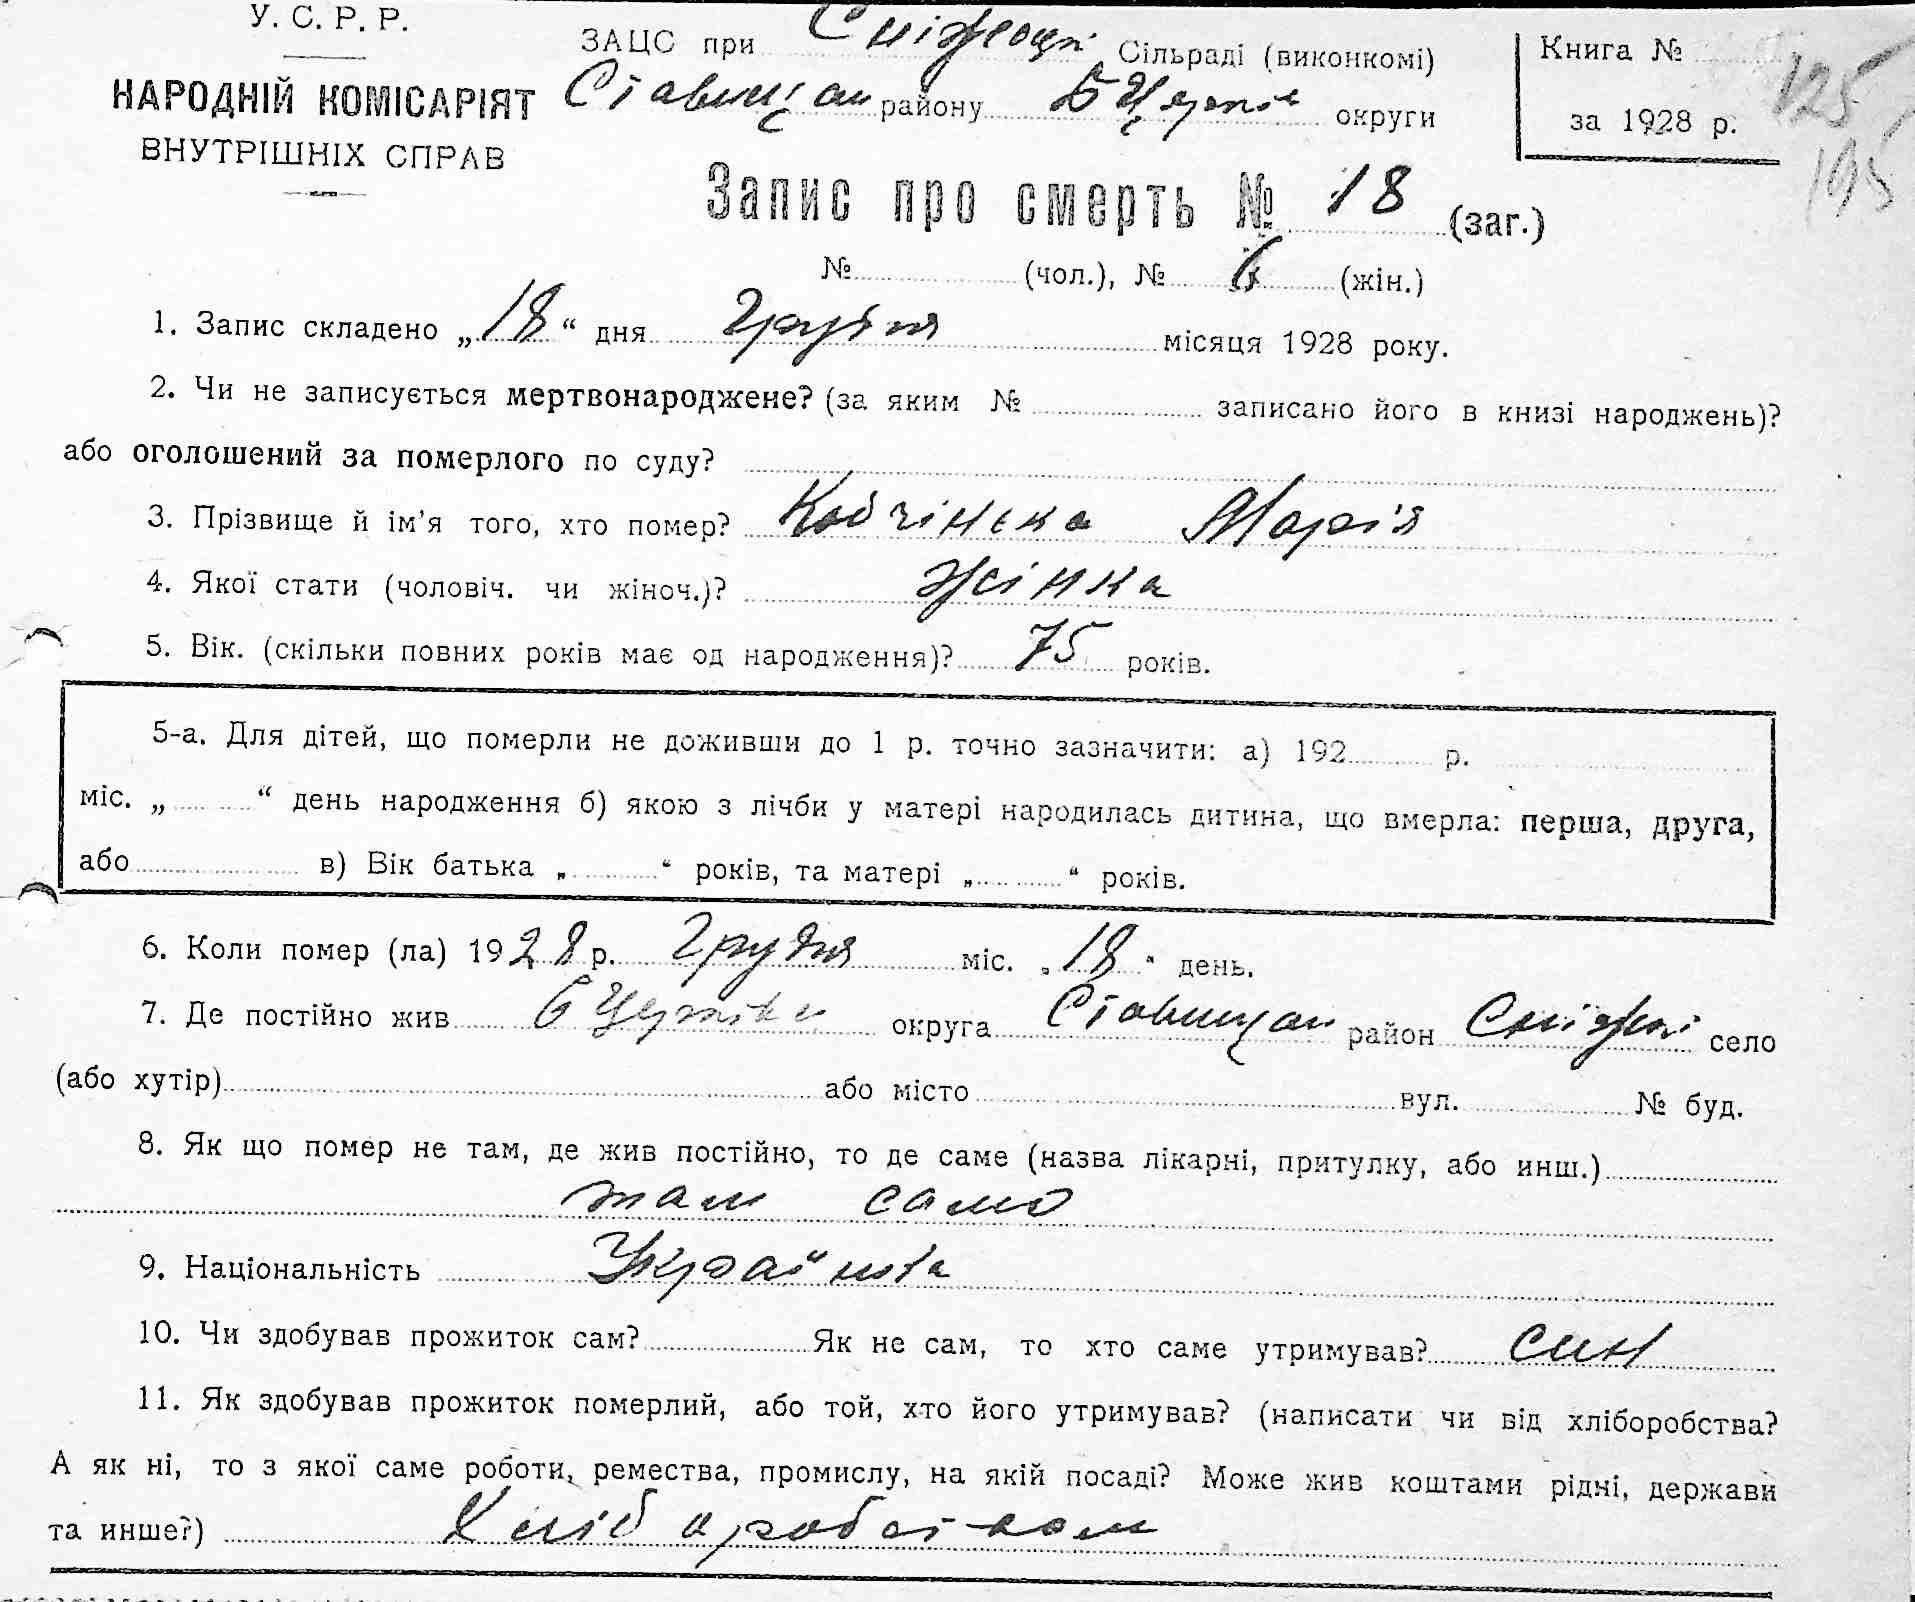 У. С. Р. Р.
НАРОДНІЙ КОМІСАРІЯТ
ВНУТРІШНІХ СПРАВ
ЗАЦС при Сніжоцкі Сільраді (виконкомі)
Ставищан району Б Церків округи
Книга №
за 1928 р.
125
195
Запис про смерть № 18 (заг.)
№ (чол.), № 6 (жін.)
1. Запис складено „18“ дня Грудня місяця 1928 року.
2. Чи не записується мертвонароджене? (за яким № записано його в книзі народжень)?
або оголошений за померлого по суду?
3. Прізвище й ім'я того, хто помер? Кобчінська Марія
4. Якої стати (чоловіч. чи жіноч.)? Жінка
5. Вік. (скільки повних років має од народження)? 75 років.
5-а. Для дітей, що померли не доживши до 1 р. точно зазначити: а) 192 р.
міс. „ “ день народження б) якою з лічби у матері народилась дитина, що вмерла: перша, друга,
або в) Вік батька „ “ років, та матері „ “ років.
6. Коли помер (ла) 1928 р. Грудня міс. „18“ день.
7. Де постійно жив Б Церківа округа Ставищан район Сніжкі село
(або хутір) або місто вул. № буд.
8. Як що помер не там, де жив постійно, то де саме (назва лікарні, притулку, або инш.)
там само
9. Національність Українка
10. Чи здобував прожиток сам? Як не сам, то хто саме утримував? син
11. Як здобував прожиток померлий, або той, хто його утримував? (написати чи від хліборобства?
А як ні, то з якої саме роботи, ремества, промислу, на якій посаді? Може жив коштами рідні, держави
та инше?) Хліборобством